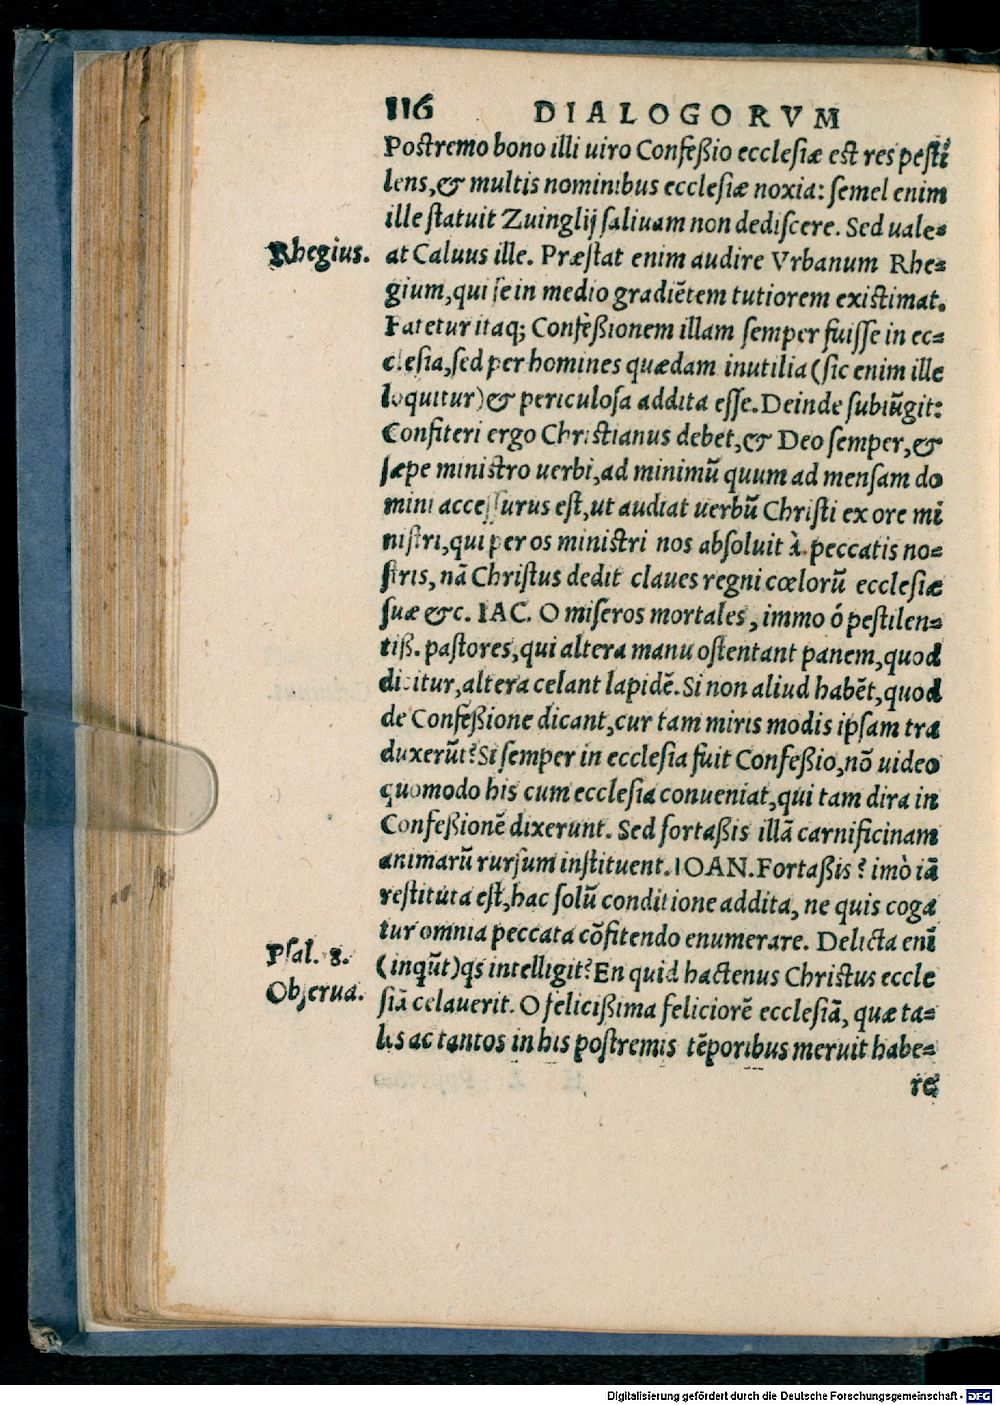 116 DIALOGORVM
Postremo bono illi uiro Confeßio ecclesiæ est res pesti
lens,& multis nominibus ecclesiæ noxia: semel enim
ille statuit Zuinglij saliuam non dediscere. Sed uale-
Rhegius.
at Caluus ille. Præstat enim audire Vrbanum Rhe-
gium,qui se in medio gradiẽtem tutiorem existimat.
Fatetur itaq; Confeßionem illam semper fuisse in ec-
clesia,sed per homines quædam inutilia (sic enim ille
loquitur)& periculosa addita esse. Deinde subiũgit:
Confiteri ergo Christianus debet,& Deo semper,&
sæpe ministro uerbi,ad minimũ quum ad mensam do
mini accessurus est,ut audiat uerbũ Christi ex ore mi
nistri,qui per os ministri nos absoluit à peccatis no-
stris, nã Christus dedit claues regni cœlorũ ecclesiæ
suæ &c. IAC. O miseros mortales, immo ó pestilen-
tiß. pastores,qui altera manu ostentant panem,quod
dicitur,altera celant lapidẽ. Si non aliud habẽt,quod
de Confeßione dicant,cur tam miris modis ipsam tra
duxerũt? Si semper in ecclesia fuit Confeßio,nõ uideo
quomodo his cum ecclesia conueniat,qui tam dira in
Confeßionẽ dixerunt. Sed fortaßis illã carnificinam
animarũ rursum instituent. IOAN. Fortaßis? imò iã
restituta est,hac solũ conditione addita, ne quis coga
tur omnia peccata cõfitendo enumerare. Delicta enĩ
Psal. 8.
(inqũt)qs intelligit? En quid hactenus Christus eccle
Obserua.
siã celauerit. O felicißima feliciorẽ ecclesiã, quæ ta-
les ac tantos in his postremis tẽporibus meruit habe-
re
Digitalisierung gefördert durch die Deutsche Forschungsgemeinschaft - DFG